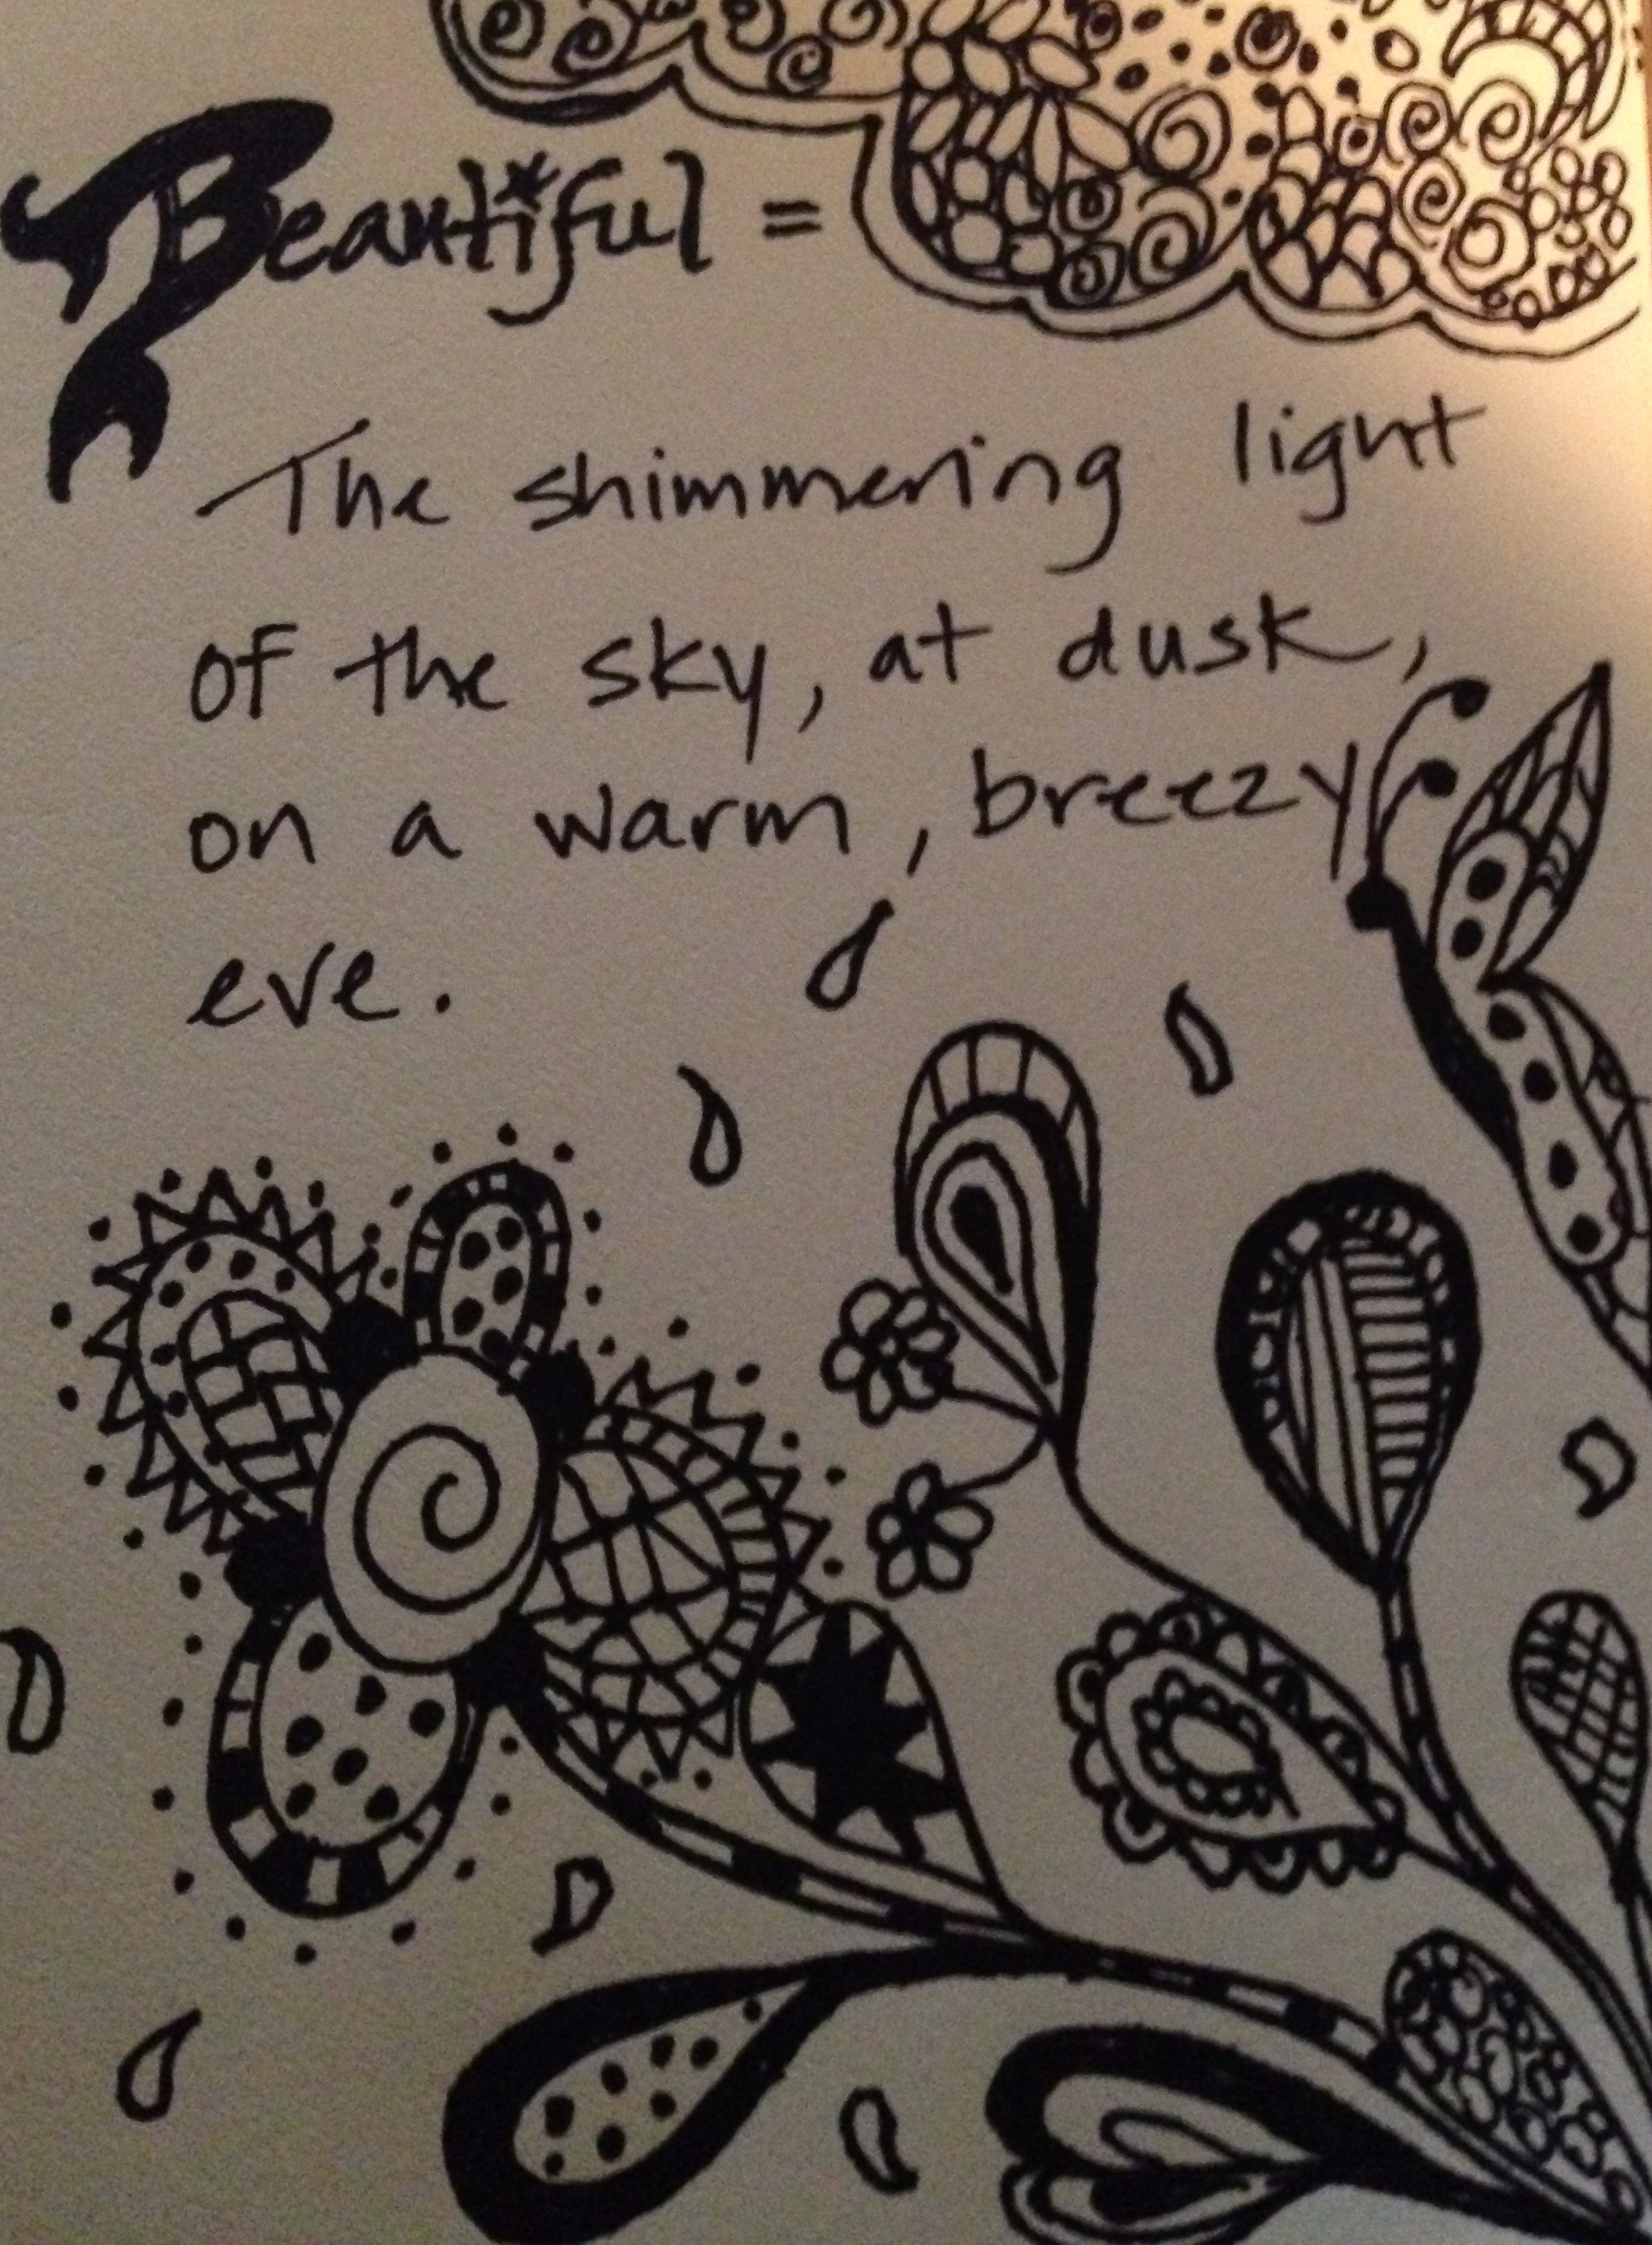 Beautiful =
The shimmering light
of the sky, at dusk,
on a warm, breezy
eve.